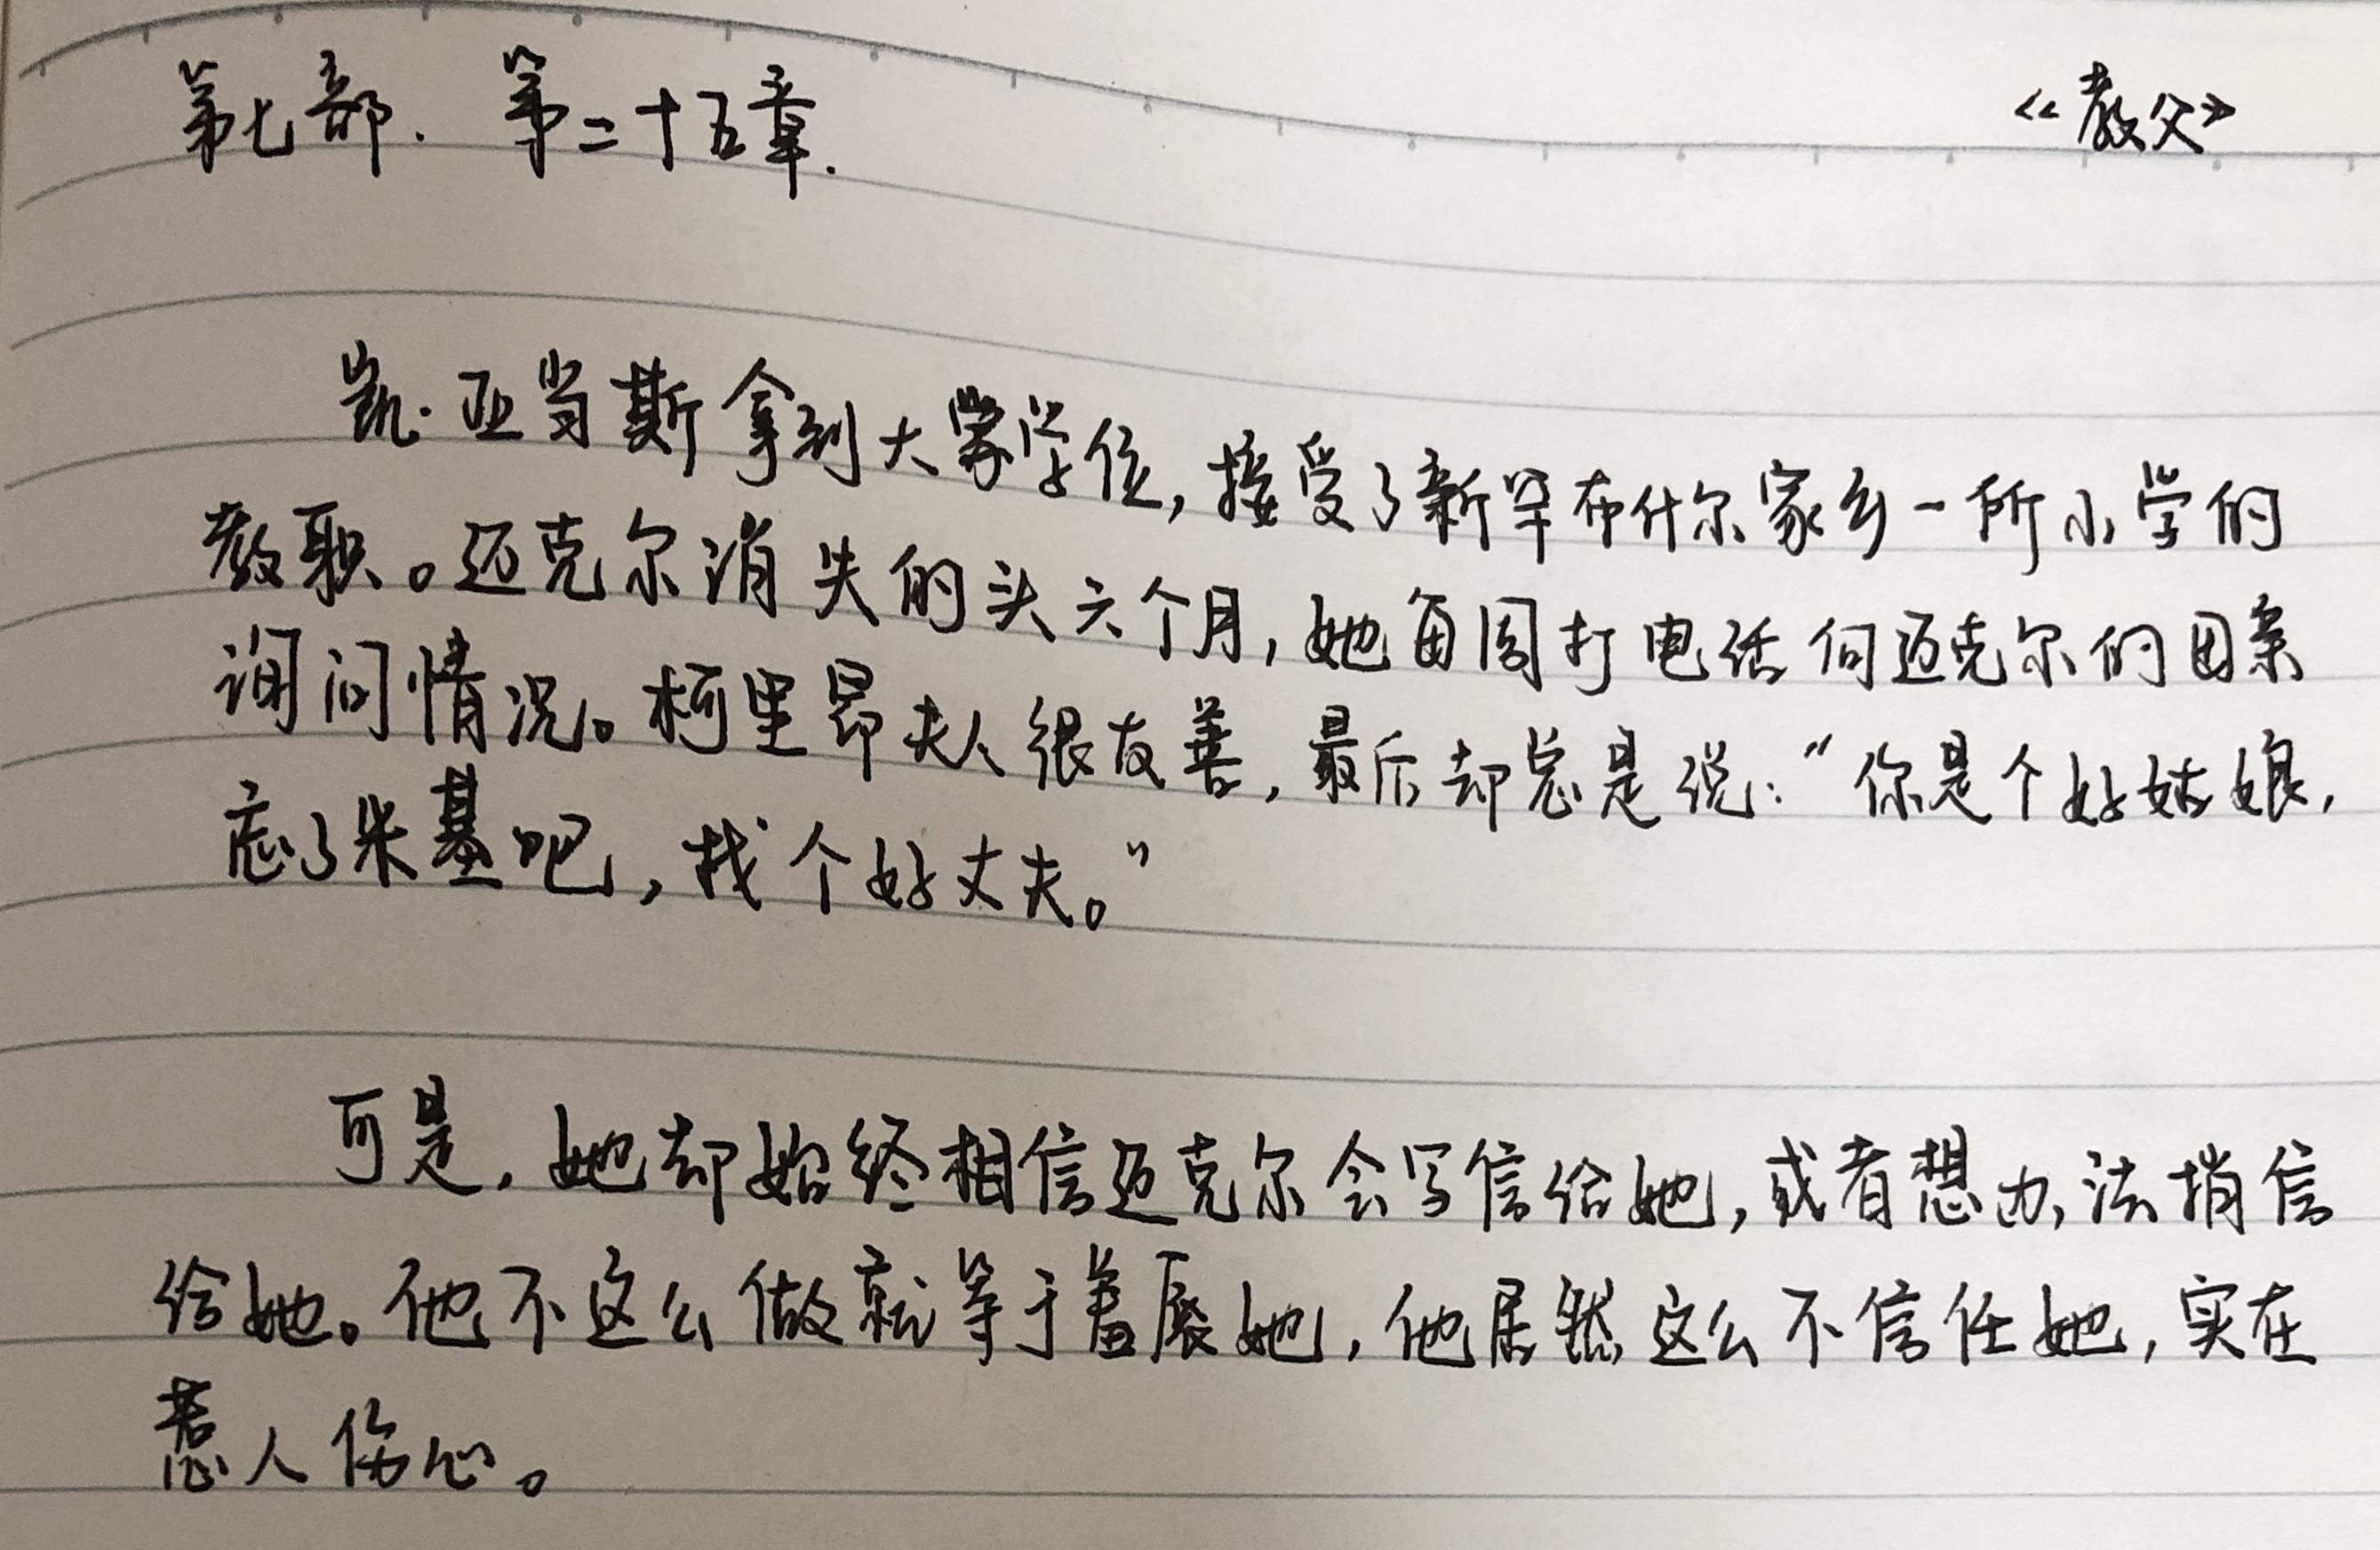 第七部. 第二十五章.
《教父》
凯·亚当斯拿到大学学位,接受了新罕布什尔家乡一所小学的
教职。迈克尔消失的头六个月,她每周打电话向迈克尔的母亲
询问情况。柯里昂夫人很友善,最后却总是说:“你是个好姑娘,
忘了米基吧,找个好丈夫。”
可是,她却始终相信迈克尔会写信给她,或者想办法捎信
给她。他不这么做就等于羞辱她,他居然这么不信任她,实在
惹人伤心。